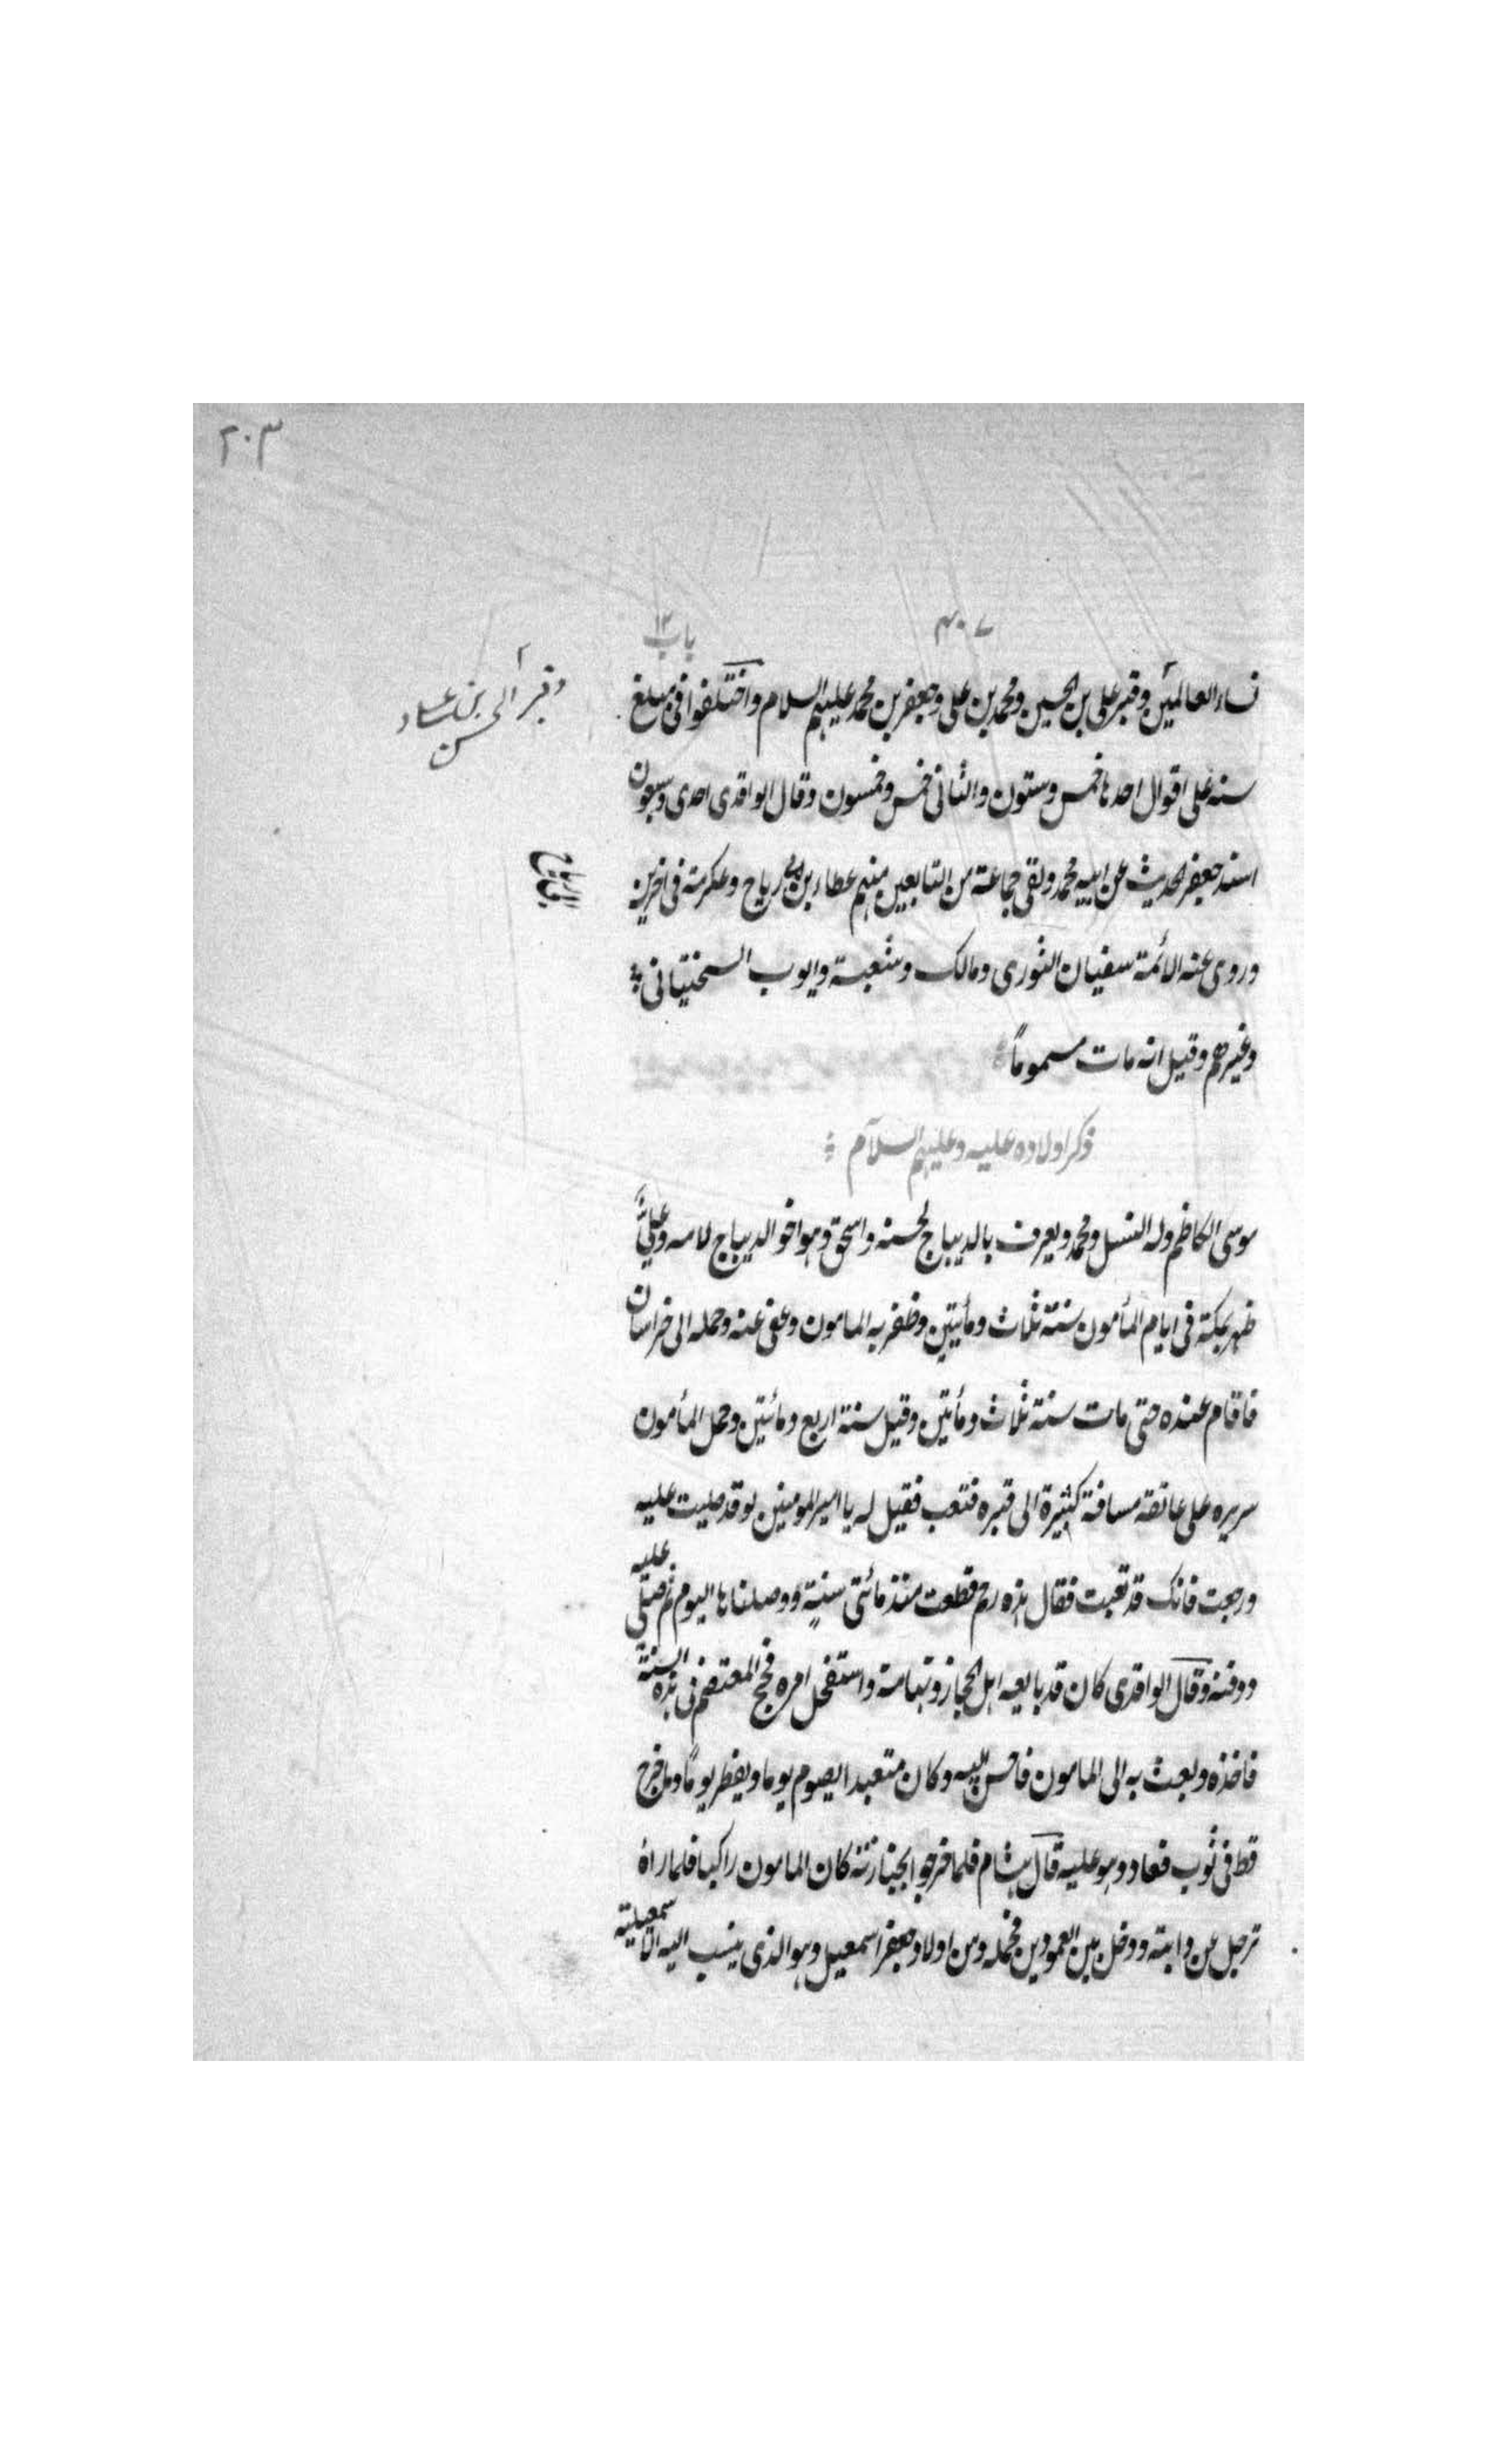 ٢٠٣
٤٠٧
باب ١٢
نساء العالمين وقبر علي بن الحسين ومحمد بن علي وجعفر بن محمد عليهم السلام واختلفوا في مبلغ
سنه على اقوال احدها خمس وستون والثاني خمس وخمسون وقال الواقدي احدى وسبعون
اسند جعفر الحديث عن ابيه محمد ولقي جماعة من التابعين منهم عطاء بن ابي رباح وعكرمة في اخرين
وروى عنه الائمة سفيان الثوري ومالك وشعبة وايوب السختياني
وغيرهم وقيل انه مات مسموماً
ذكر اولاده عليه وعليهم السلام
موسى الكاظم وله النسل ومحمد ويعرف بالديباج لحسنه واسحق وهو اخو الديباج لامه وعلي
ظهر بمكة في ايام المأمون سنة ثلاث ومأيتين وظفر به المامون وعفى عنه وحمله الى خراسان
فاقام عنده حتى مات سنة ثلاث ومأتين وقيل سنة اربع ومائتين وحمل المأمون
سريره على عاتقه مسافة كثيرة الى قبره فتعب فقيل له يا امير المومنين لو قد صليت عليه
ورجعت فانك قد تعبت فقال هذه رحم قطعت منذ مائتي سنة ووصلناها اليوم ثم صلى عليه
ودفنه وقال الواقدي كان قد بايعه اهل الحجاز وتهامة واستفحل امره فحج المعتصم في هذه السنة
فاخذه وبعث به الى المامون فاحسن اليه وكان متعبدا يصوم يوما ويفطر يوماً وما خرج
قط في ثوب فعاد وهو عليه قال هشام فلما خرجوا بجنازته كان المامون راكبا فلما راه
ترجل عن دابته ودخل بين العمودين فحمله ومن اولاد جعفر اسمعيل وهو الذي ينسب اليه الاسمعيلية